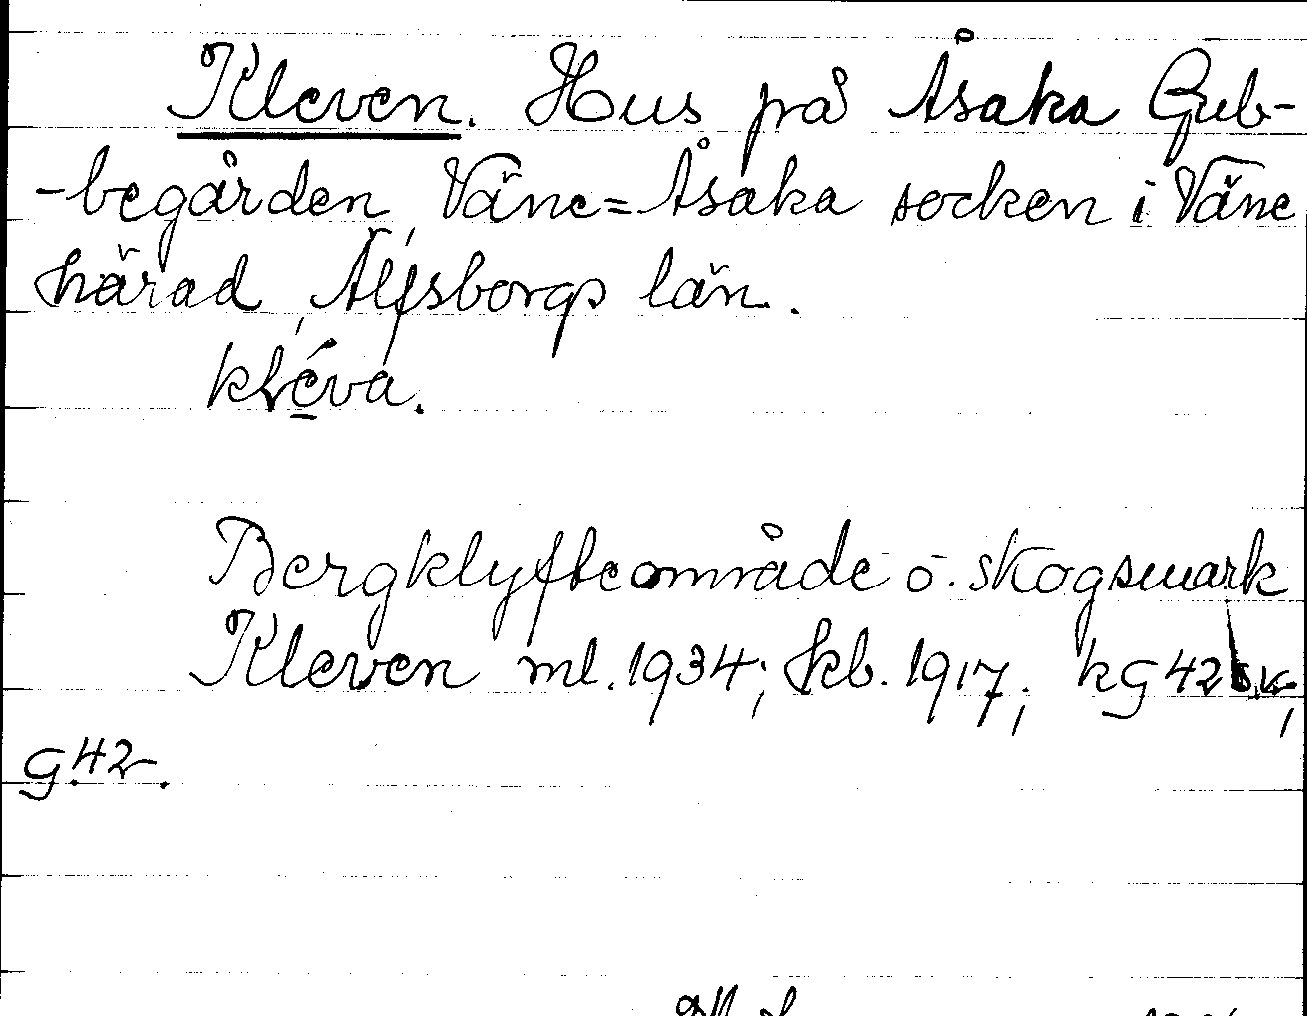 Kleven. Hus på Åsaka Gub-
-begården, Väne=Åsaka socken i Väne
härad, Älfsborgs län.
kléva.
Bergklyfteområde o. skogsmark
Kleven ml. 1934; kb. 1917; kG 42
G42.